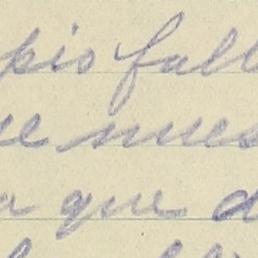 pis fall
ue nues
a que d